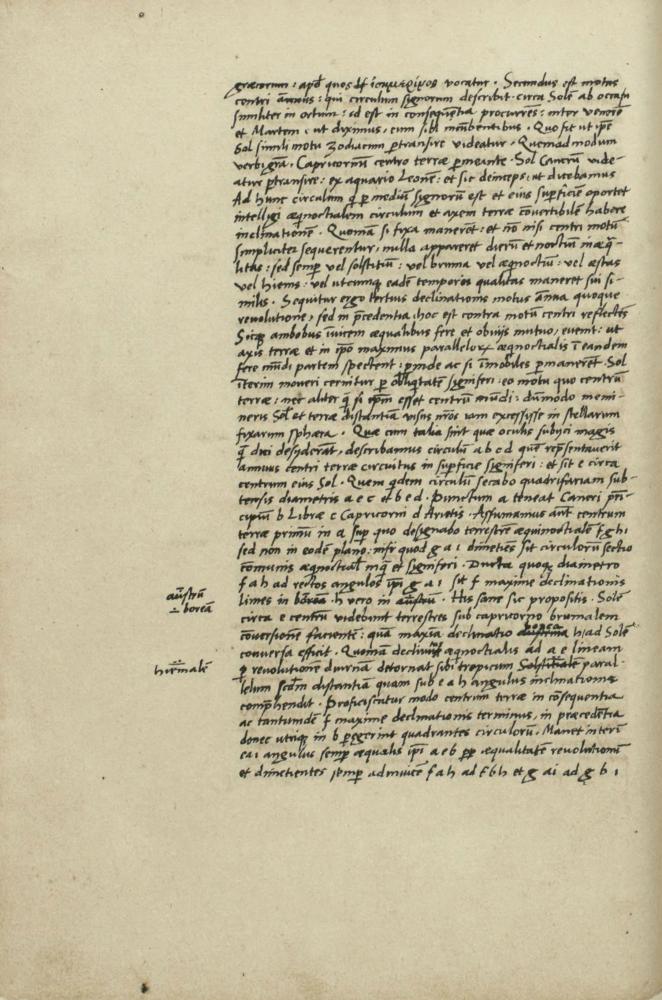 græcorum : apd̄ quos ἰσημερινὸς vocatur . Secundus est motus
centri annuus : qui circulum signorum describit circa Solē ab occasu
similiter in ortum : id est in consequētia procurrēs : inter venerē
et Martem : ut diximus , cum sibi incūbentibus . Quo fit ut ip̄e
Sol simili motu zodiacum p̄transire videatur . Quemadmodum
verbi grā . Capricornū centro terræ p̄meante . Sol Cancrū vide-
atur p̄transire : ex aquario Leonē : et sic deinceps : ut dicebamus
Ad hunc circulum q̄ p̄ mediū signorū est et eius sup̄ficiē oportet
intelligi æq̄noctialem circulum et axem terræ cōvertibilē habere
inclinationē . Quoniā si fixa manerēt : et nō nisi centri motū
simpliciter sequerentur , nulla appareret dierū et noctiū inæq̄-
litas : sed semp̄ vel solstitiū : vel bruma vel æq̄noctiū : vel æstas
vel hiems : vel utcumq̨ eadē temporis qualitas maneret sui si-
milis . Sequitur ergo tertius declinationis motus annua quoque
revolutione , sed in p̄cedentia , hoc est contra motū centri reflectēs
Sicq̨ ambobus īvicem æqualibus fere et obvijs mutuo , evenit : ut
axis terræ et in ip̄o maximus parallelorū æq̄noctialis ī eandem
fere mūdi partem spectent : p̄inde ac si īmobiles p̄manerēt . Sol
īterim moveri cernitur p̄ obliq̄tatē signiferi : eo motu quo centrū
terræ : nec aliter q̄ si ip̄m esset centrū mūdi : dūmodo memi-
neris Sol et terræ distantiā visus nr̄os iam excessisse in stellarum
fixarum sphæra . Quæ cum talia sint quæ oculis subijci magis
q̄ dici desyderāt , describamus circulū a b c d quē rep̄sentaverit
annuus centri terræ circuitus in sup̄ficie signiferi : et sit e circa
centrum eius Sol . Quem q̄dem circulū secabo quadrifariam sub-
tensis diametris a e c et b e d . Punctum a teneat Cancri prī-
cipiū b Libræ c Capricorni d Arietis . Assumamus aūt centrum
terræ primū in a sup̄ quo designabo terrestrē æquinoctialē f g h i
sed non in eodē plano : nisi quod g a i dimetiēs sit circulorū sectio
cōmunis æq̄noctial inq̄ et signiferi . Ducta quoq̨ diametro
f a h ad rectos angulos ip̄i g a i sit f maxime declinationis
limes in boreā . h vero in austrū . His sane sic propositis . Solē
circa e centrū videbunt terrestres sub capricorno brumalem
cōversionē faciente : quā maxīa declinatio borea austrina h ad Solē
conversa efficit . Quoniā declivitas æq̄noctialis ad a e lineam
p̄ revolutionē diurnā detornat sibi tropicum Solstitialē paral-
lelum scd̄m distantiā quam sub e a h angulus inclinationis
comp̄hendit . Proficiscatur modo centrum terræ in cōsequentia
ac tantumdē f maxime declinationis terminus , in præcedētia
donec utriq̨ in b p̄egerint quadrantes circulorū . Manet interī
e a i angulus semp̄ æqualis ip̄i a e b pp̄ æqualitatē revolutionū
et dimetientes semp̄ adinvicē f a h ad f b h et g a i ad g b i
austrū
∸ boreā
hiemalē